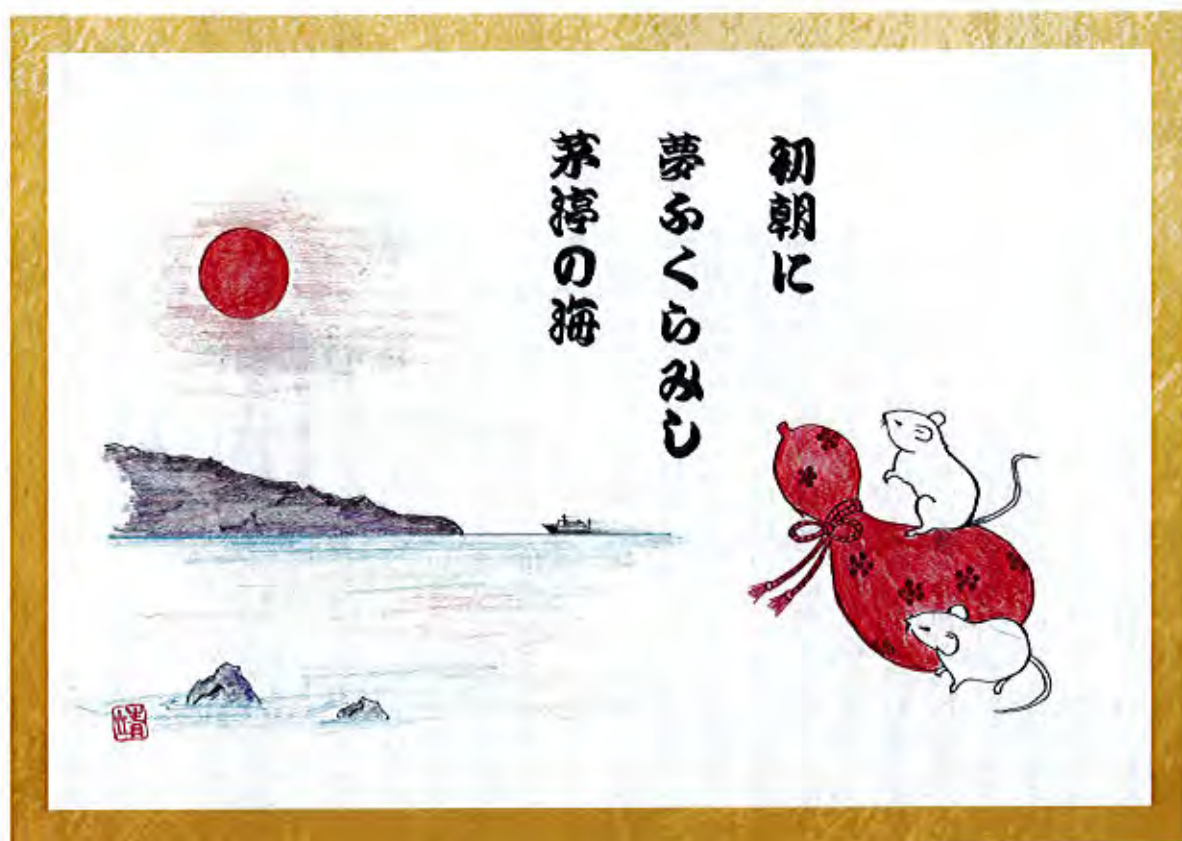 初朝に
夢ふくらみし
茅渟の海
靖